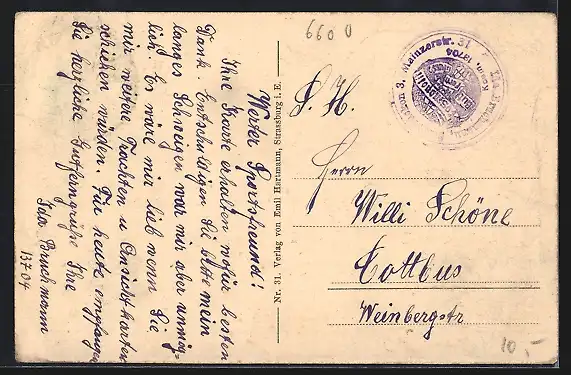 Werter Sportsfreund!
Ihre Karte erhalten wofür besten
Dank. Entschuldigen Sie bitte mein
langes Schweigen war mir aber unmög-
lich. Es wäre mir lieb wenn Sie
mir weitere Trachten u Ansichtskarten
schicken würden. Für heute empfangen
Sie herzliche Gutferngrüße Ihr
Feldw. Bruckmann
13704
Nr. 31. Verlag von Emil Hartmann, Strassburg i. E.
6600
S. H.
Herrn
Willi Schöne
Cottbus
Weinbergstr
10,-
3. Mainzerstr. 31
13704